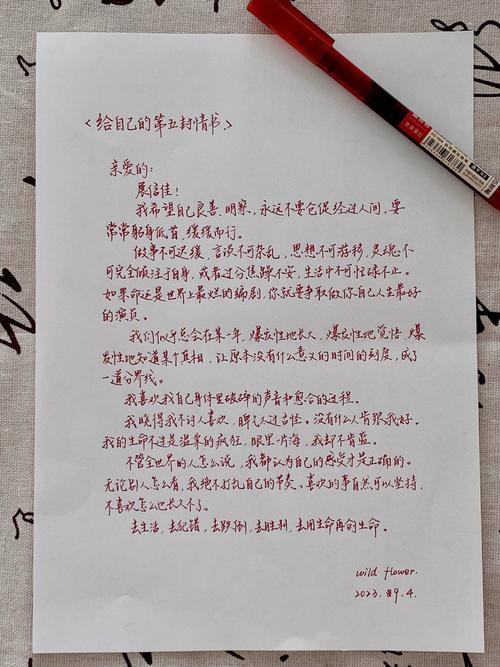 <给自己的第五封情书>
亲爱的:
展信佳!
我希望自己良善、明察,永远不要仓促经过人间,要
常常躬身低首,缓缓而行。
做事不可迟缓,言谈不可杂乱,思想不可游移,灵魂不
可完全倾注于自身,或者过分焦躁不安,生活中不可忙碌不止。
如果命运是世界上最烂的编剧,你就要争取做你自己人生最好
的演员。
我们似乎总会在某一年,爆发性地长大,爆发性地觉悟,爆
发性地知道某个真相,让原本没有什么意义的时间的刻度,成了
一道分界线。
我喜欢我自己身体里破碎的声音和愈合的过程。
我晓得我不讨人喜欢,脾气又过古怪。没有什么人肯跟我好。
我的生命不过是温柔的疯狂,眼里有海,我却不肯蓝。
不管全世界的人怎么说,我都认为自己的感受才是正确的。
无论别人怎么看,我绝不打乱自己的节奏、喜欢的事自然可以坚持,
不喜欢怎么也长久不了。
去生活,去犯错,去跌倒,去胜利,去用生命再创生命。
wild flower.
2023. 9.4.